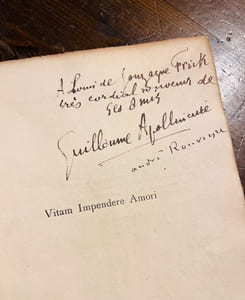 A Louis de Gonzague Frick
très cordial souvenir de
ses amis
Guillaume Apollinaire
andré Rouveyre
Vitam Impendere Amori